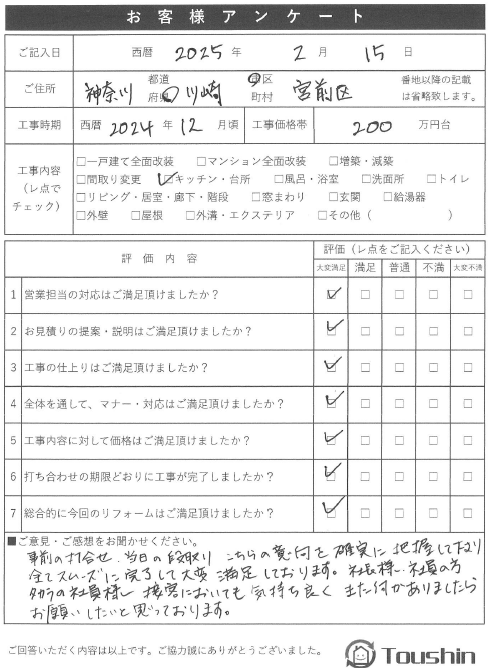 お客様アンケート
ご記入日 西暦 2025 年 2 月 15 日
ご住所 神奈川 都道府県 川崎 市区町村 宮前区 番地以降の記載は省略致します。
工事時期 西暦 2024 年 12 月頃 工事価格帯 200 万円台
工事内容（レ点でチェック）
□一戸建て全面改装 □マンション全面改装 □増築・減築
□間取り変更 ☑キッチン・台所 □風呂・浴室 □洗面所 □トイレ
□リビング・居室・廊下・階段 □窓まわり □玄関 □給湯器
□外壁 □屋根 □外溝・エクステリア □その他（ ）
評価内容 評価（レ点をご記入ください）
大変満足 満足 普通 不満 大変不満
1 営業担当の対応はご満足頂けましたか？ ☑ □ □ □ □
2 お見積りの提案・説明はご満足頂けましたか？ ☑ □ □ □ □
3 工事の仕上りはご満足頂けましたか？ ☑ □ □ □ □
4 全体を通して、マナー・対応はご満足頂けましたか？ ☑ □ □ □ □
5 工事内容に対して価格はご満足頂けましたか？ ☑ □ □ □ □
6 打ち合わせの期限どおりに工事が完了しましたか？ ☑ □ □ □ □
7 総合的に今回のリフォームはご満足頂けましたか？ ☑ □ □ □ □
■ご意見・ご感想をお聞かせください。
事前の打合せ、当日の段取り こちらの意向を確実に把握しており
全てスムーズに完了して大変満足しております。社長様、社員の方
の社員様 接客においても気持ち良く また何かありましたら
お願いしたいと思っております。
ご回答いただく内容は以上です。ご協力誠にありがとうございました。
Toushin